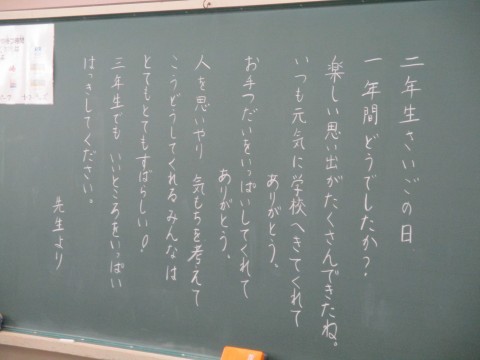 二年生さいごの日
一年間どうでしたか?
楽しい思い出がたくさんできたね。
いつも元気に学校へきてくれて
ありがとう、
お手つだいをいっぱいしてくれて
ありがとう、
人を思いやり 気もちを考えて
こうどうしてくれるみんなは
とてもとてもすばらしい!
三年生でも いいところをいっぱい
はっきしてください。
先生より